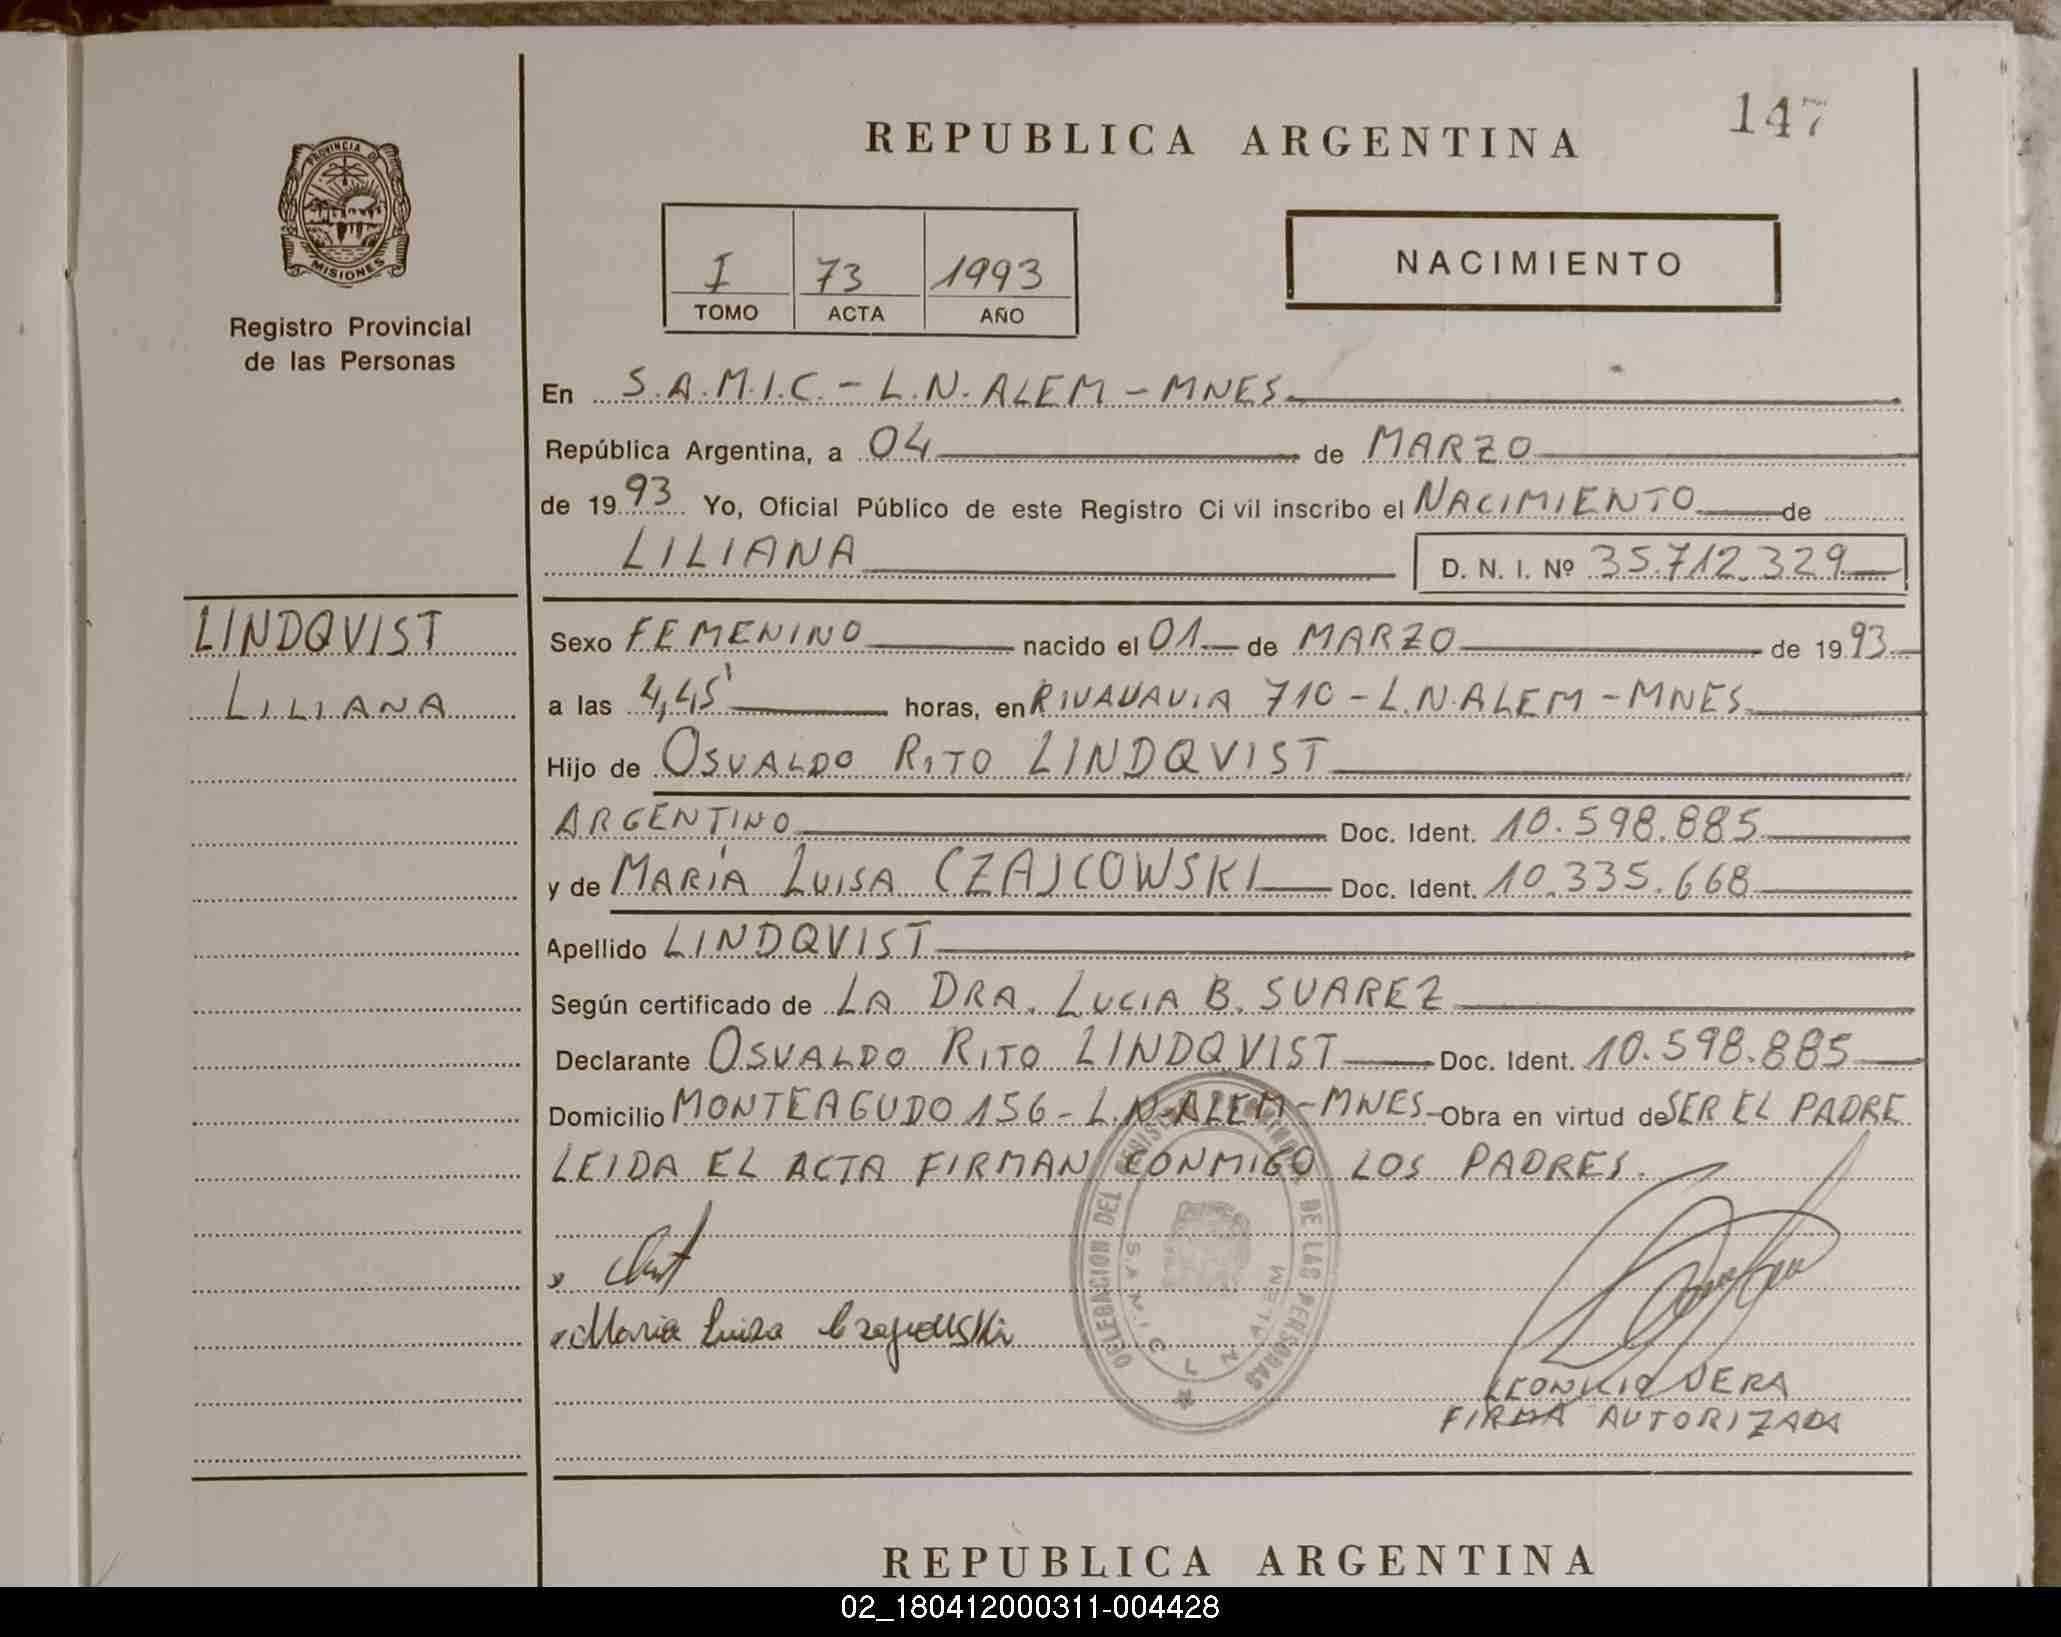 147
REPUBLICA ARGENTINA
PROVINCIA DE
MISIONES
Registro Provincial
de las Personas
I 73 1993
TOMO ACTA AÑO
NACIMIENTO
En S.A.M.I.C. - L.N. ALEM - MNES
República Argentina, a 04 de MARZO
de 1993 Yo, Oficial Público de este Registro Civil inscribo el NACIMIENTO de
LILIANA D. N. I. Nº 35.712.329
LINDQVIST
LILIANA
Sexo FEMENINO nacido el 01 de MARZO de 1993
a las 4,45' horas, en RIVADAVIA 710 - L.N. ALEM - MNES
Hijo de OSVALDO RITO LINDQVIST
ARGENTINO Doc. Ident. 10.598.885
y de MARÍA LUISA CZAJCOWSKI Doc. Ident. 10.335.668
Apellido LINDQVIST
Según certificado de LA DRA. LUCIA B. SUAREZ
Declarante OSVALDO RITO LINDQVIST Doc. Ident. 10.598.885
Domicilio MONTEAGUDO 156 - L.N. ALEM - MNES - Obra en virtud de SER EL PADRE
LEIDA EL ACTA FIRMAN CONMIGO LOS PADRES.
DELEGACION DEL REGISTRO PROVINCIAL DE LAS PERSONAS
S.A.M.I.C. L. N. ALEM
Maria Luisa Czajcowski
LEONICIO VERA
FIRMA AUTORIZADA
REPUBLICA ARGENTINA
02_180412000311-004428